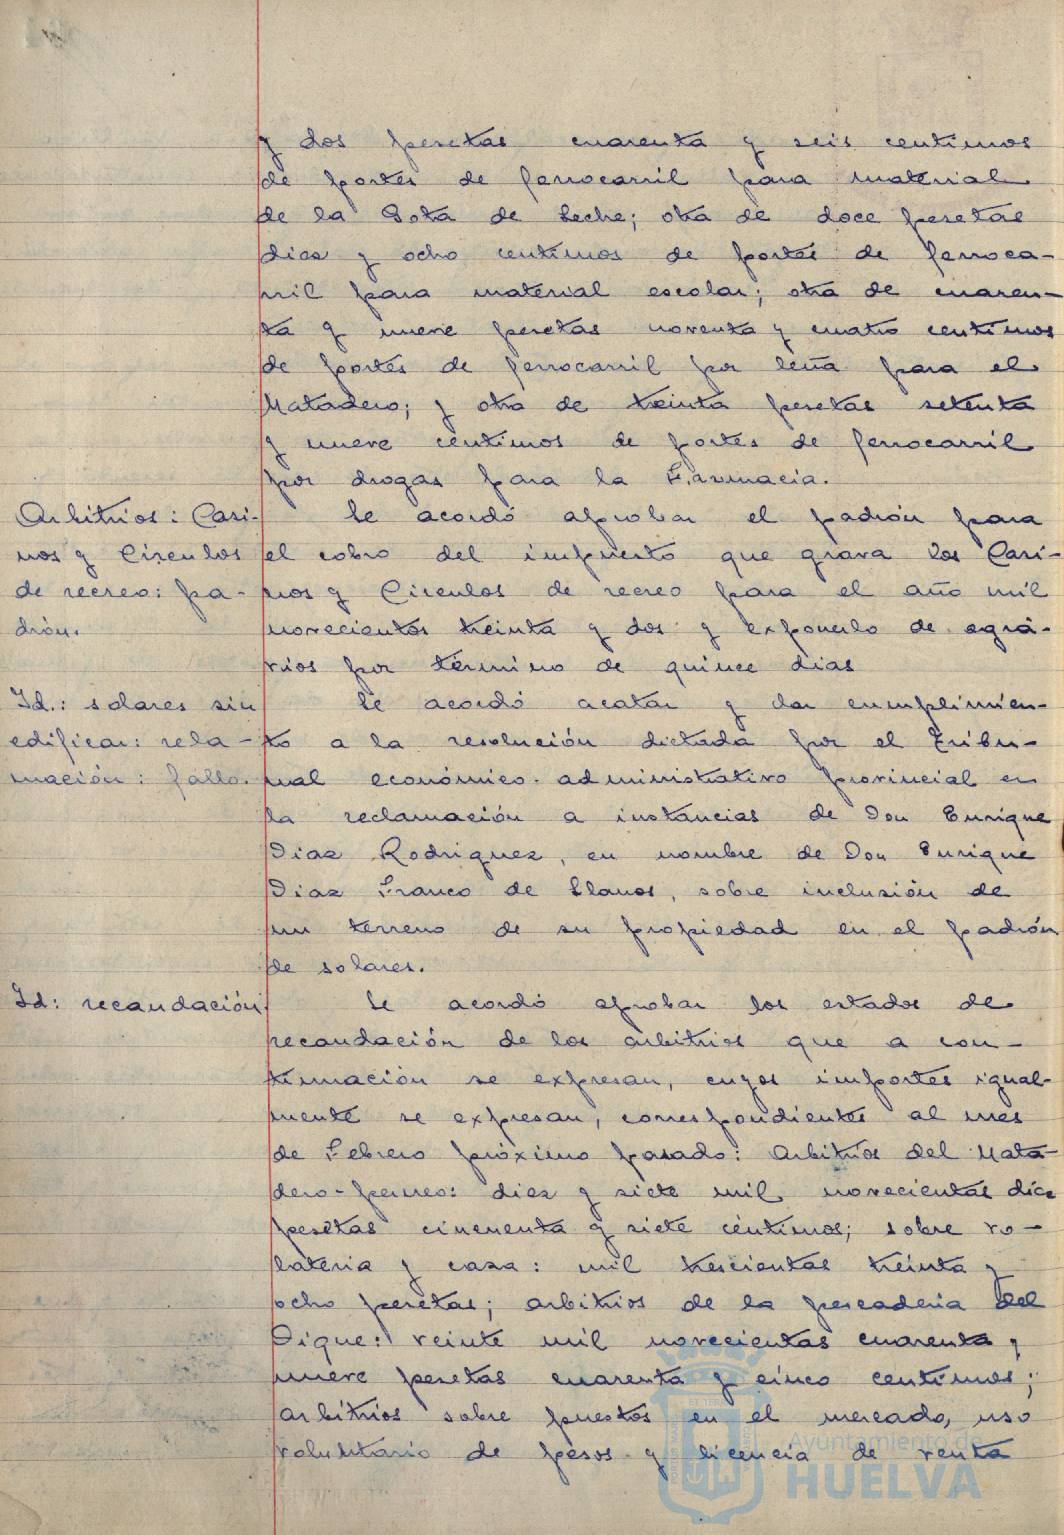 y dos pesetas cuarenta y seis centimos
de portes de ferrocarril para material
de la Gota de Leche; otra de doce pesetas
diez y ocho centimos de portes de ferroca-
rril para material escolar; otra de cuaren-
ta y nueve pesetas noventa y cuatro centimos
de portes de ferrocarril por leña para el
Matadero; y otra de treinta pesetas setenta
y nueve centimos de portes de ferrocarril
por drogas para la Farmacia.
Arbitrios: Casi-
nos y Circulos
de recreo: pa-
drón.
Se acordó aprobar el padrón para
el cobro del impuesto que grava los Casi-
nos y Circulos de recreo para el año mil
novecientos treinta y dos y exponerlo de agra-
vios por término de quince dias
Id.: solares sin
edificar: recla-
mación: fallo.
Se acordó acatar y dar cumplimien-
to a la resolución dictada por el Tribu-
nal económico-administrativo provincial en
la reclamación a instancias de Don Enrique
Diaz Rodriguez, en nombre de Don Enrique
Diaz Franco de Llanos, sobre inclusión de
un terreno de su propiedad en el padrón
de solares.
Id: recaudación
Se acordó aprobar los estados de
recaudación de los arbitrios que a con-
tinuación se expresan, cuyos importes igual-
mente se expresan, correspondientes al mes
de Febrero próximo pasado: Arbitrios del Mata-
dero-perneo: diez y siete mil novecientas diez
pesetas cincuenta y siete centimos; sobre vo-
lateria y caza: mil trescientas treinta y
ocho pesetas; arbitrios de la pescaderia del
Dique: veinte mil novecientas cuarenta y
nueve pesetas cuarenta y cinco centimos;
arbitrios sobre puestos en el mercado, uso
voluntario de pesos y licencia de venta
Ayuntamiento de
HUELVA